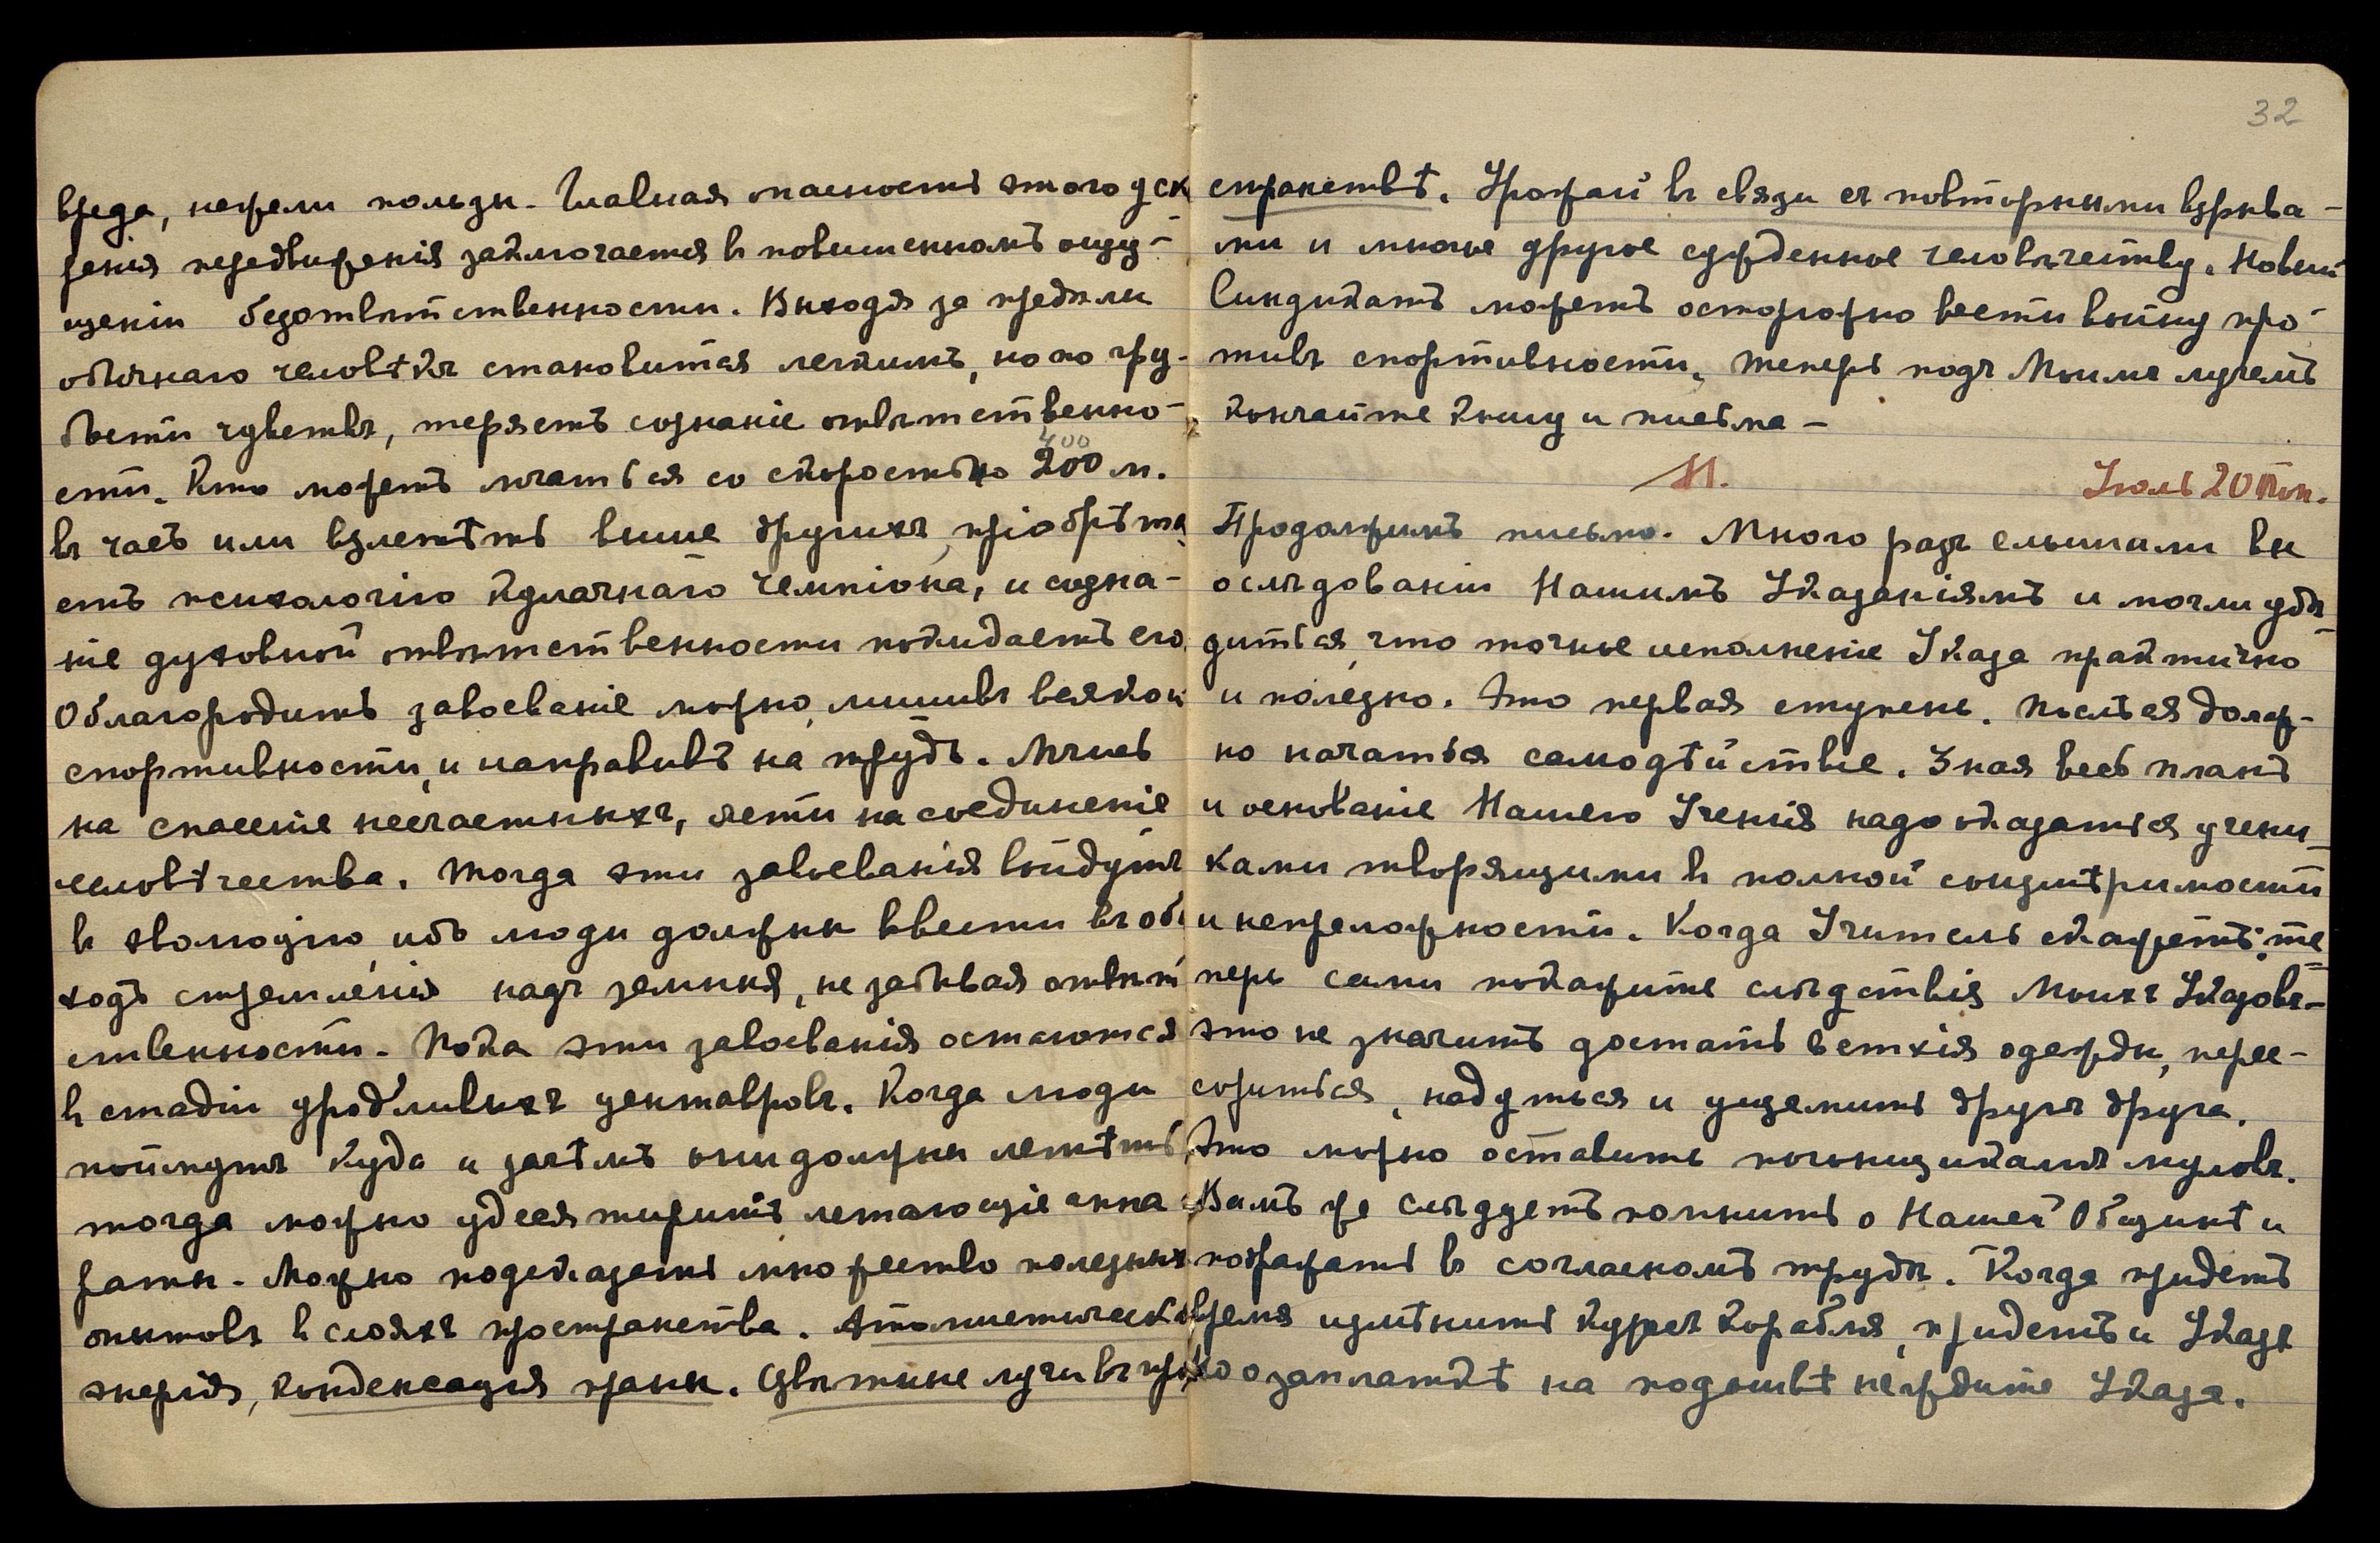 вреда, нежели пользы. Главная опасность этого уск
ренія передвиженія заключается въ повышенномъ ощу-
щеніи безотвѣтственности. Выходя за предѣлы
обычнаго человѣкъ становится легкимъ, но по гру-
бости чувствъ, теряетъ сознаніе отвѣтственно-
400
сти. Кто можетъ мчаться со скоростью 200 м.
въ часъ или взлетѣть выше другихъ, пріобрѣта
етъ психологію кулачнаго чемпіона, и созна-
ніе духовной отвѣтственности покидаетъ его.
Облагородить завоеваніе можно, лишивъ всякой
спортивности, и направивъ на трудъ. Мчись
на спасеніе несчастныхъ, лети на соединеніе
человѣчества. Тогда эти завоеванія войдутъ
въ эволюцію, ибо люди должны ввести въ об
ходъ стремленія надъ земныя, не забывая отвѣт
ственности. Пока эти завоеванія остаются
въ стадіи уродливыхъ центавровъ. Когда люди
поймутъ куда и зачѣмъ они должны летѣть,
тогда можно удесятирить летающіе аппа
раты. Можно подсказать множество полезныхъ
опытовъ въ слояхъ пространства. Атомистическа
энергія, конденсація праны. Цвѣтные лучи въ про
32
странствѣ. Урожай въ связи съ повторными взрыва-
ми и многое другое сужденное человѣчеству. Новый
Синдикатъ можетъ осторожно вести войну про-
тивъ спортивности. Теперь подъ Моимъ лучемъ
кончайте книгу и письма –
М. Іюль 20
Продолжимъ письмо. Много разъ слышали вы
о слѣдованіи Нашимъ Указаніямъ и могли убѣ
диться, что точное исполненіе Указа практично
и полезно. Это первая ступень. Послѣ ея долж-
но начаться самодѣйствіе. Зная весь планъ
и основаніе Нашего Ученія надо оказаться учени-
ками творящими въ полной соизмѣримости
и непреложности. Когда Учитель скажетъ: те
перь сами покажите слѣдствія Моихъ Указовъ –
это не значитъ достать ветхія одежды, перес-
сориться, надуться и ущемить другъ друга.
Это можно оставить погонщикамъ муловъ.
Вамъ же слѣдуетъ помнить о Нашей Общинѣ и
подражать въ согласномъ трудѣ. Когда придетъ
время измѣнить курсъ корабля, придетъ и Указъ
но о заплаткѣ на подошвѣ не ждите Указа.